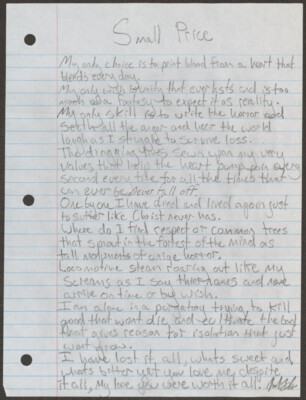 Small Price
My only choice is to print blood from a heart that
bleeds every day.
My only wish is unity that everlasts and is too
much of a fantasy to expect it as reality.
My only skill is to write the horror and
settle all the anger and hear the world
laugh as I struggle to survive loss.
The dragging trees down was my very
values that help the heart pump pain every
second every time for all the times that
can ever be never fall off.
One by one I have died and lived again just
to suffer like Christ never has.
Where do I find respect or common trees
that sprout in the forest of the mind as
tall monuments of unique horror.
Locomotive steam roaring out like my
screams as I say their names and
arrive on time or by wish.
I am alone in a purgatory trying to kill
good that wont die and cultivate the bad
that gives reason for isolation that just
wont grow.
I have lost it all, whats sweet and
whats bitter yet you love me, despite
it all, My love you were worth it all.